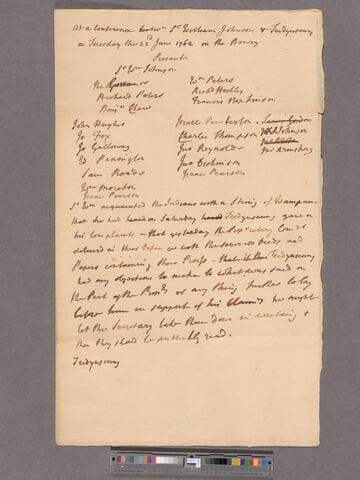 At a Conference betwn Sr William Johnson & Teedyuscung
on Tuesday the 22d June 1762 in the Bowry
Present
Sr Wm Johnson
The Governor Wm Peters
Richard Peters Richd Hockley
Benjn Chew Francis Hopkinson
John Hughes Israel Pemberton James Gordon
Jo Fox Charles Thompson Johnson
Jo Galloway Jno Reynolds
Ed Pennington Jno Dickinson Mr Armstrong
Sam Roads Isaac Pearson
Wm Moreton
Isaac Pearson
Sr Wm acquainted the Indians with a String of Wampum
that he had heard on Saturday Teedyuscung gave in
his Complaints – that yesterday the Proprietary Comrs
delivered in their Defence as with the several Deeds and
Papers containing their Proofs – that if Teedyuscung
had any Objections to make to what was said on
the Part of the Props or any thing further to lay
before him in support of his Claims he might
let the Secretary take them down in writing &
then they should be publickly read.
Teedyuscung